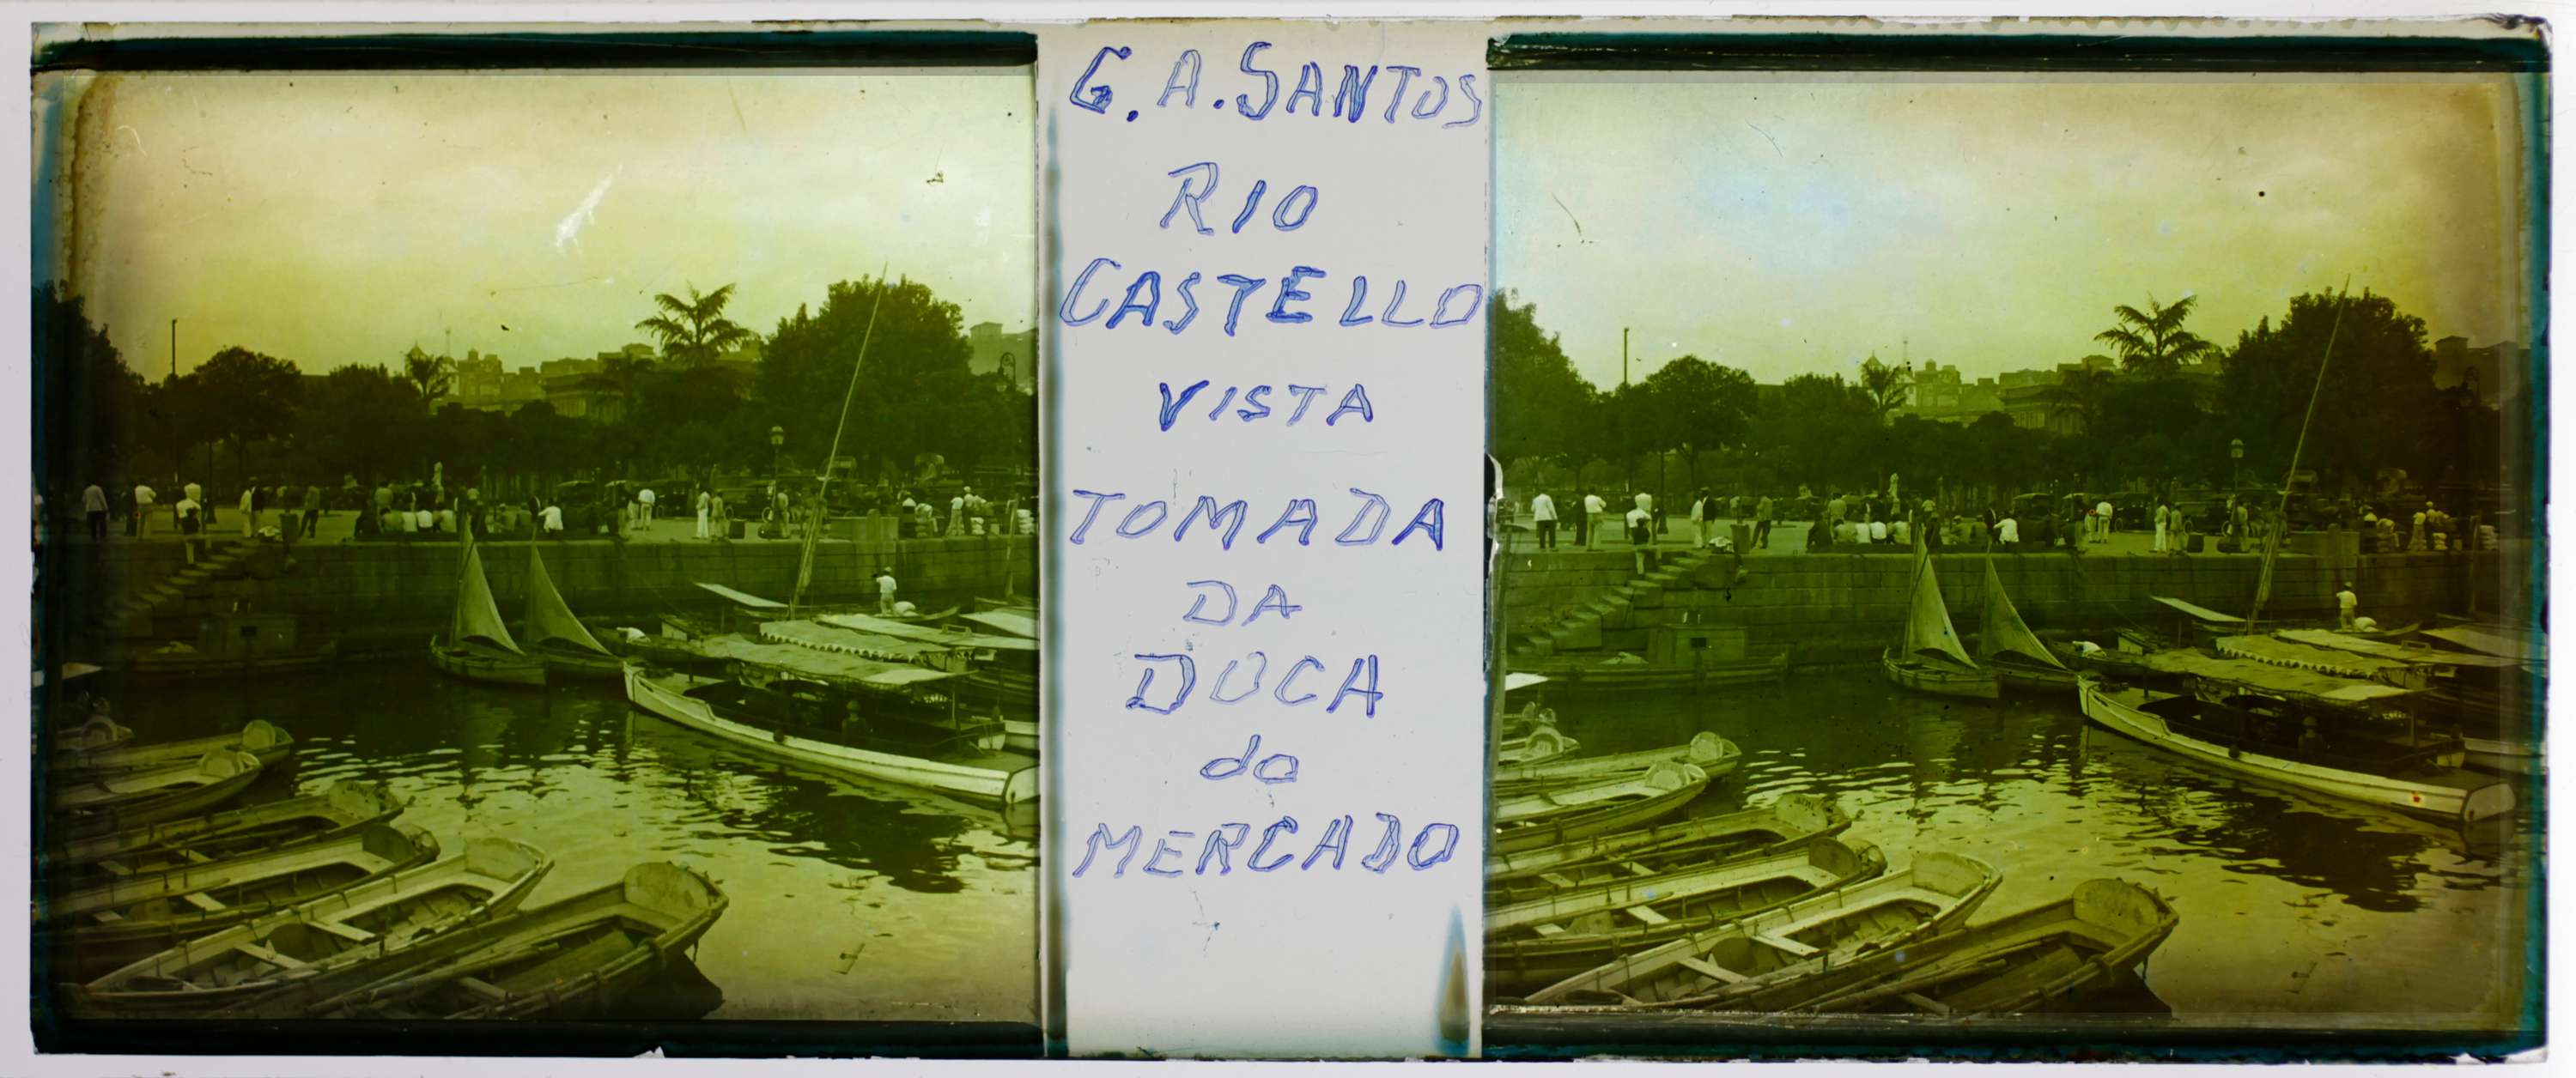 G. A. SANTOS
RIO
CASTELLO
VISTA
TOMADA
DA
DOCA
do
MERCADO